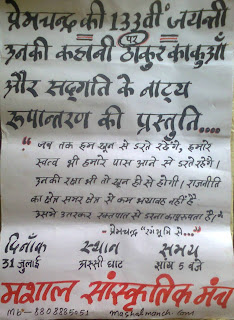 प्रेमचन्द्र की 133वीं जयन्ती
पर
उनकी कहानी ठाकुर का कुआँ
और सद्गति के नाट्य
रूपान्तरण की प्रस्तुति....
"जब तक हम खून से डरते रहेंगे, हमारे
स्वत्व भी हमारे पास आने से डरते रहेंगे।
उनकी रक्षा भी तो खून ही से होगी। राजनीति
का क्षेत्र समर क्षेत्र से कम भयावह नहीं है
उसमें उतरकर रक्तपात से डरना कापुरुषता है।"
- प्रेमचन्द्र "रंगभूमि से..."
दिनाँक स्थान समय
31 जुलाई अस्सी घाट सायं 5 बजे
मशाल सांस्कृतिक मंच
8808885051